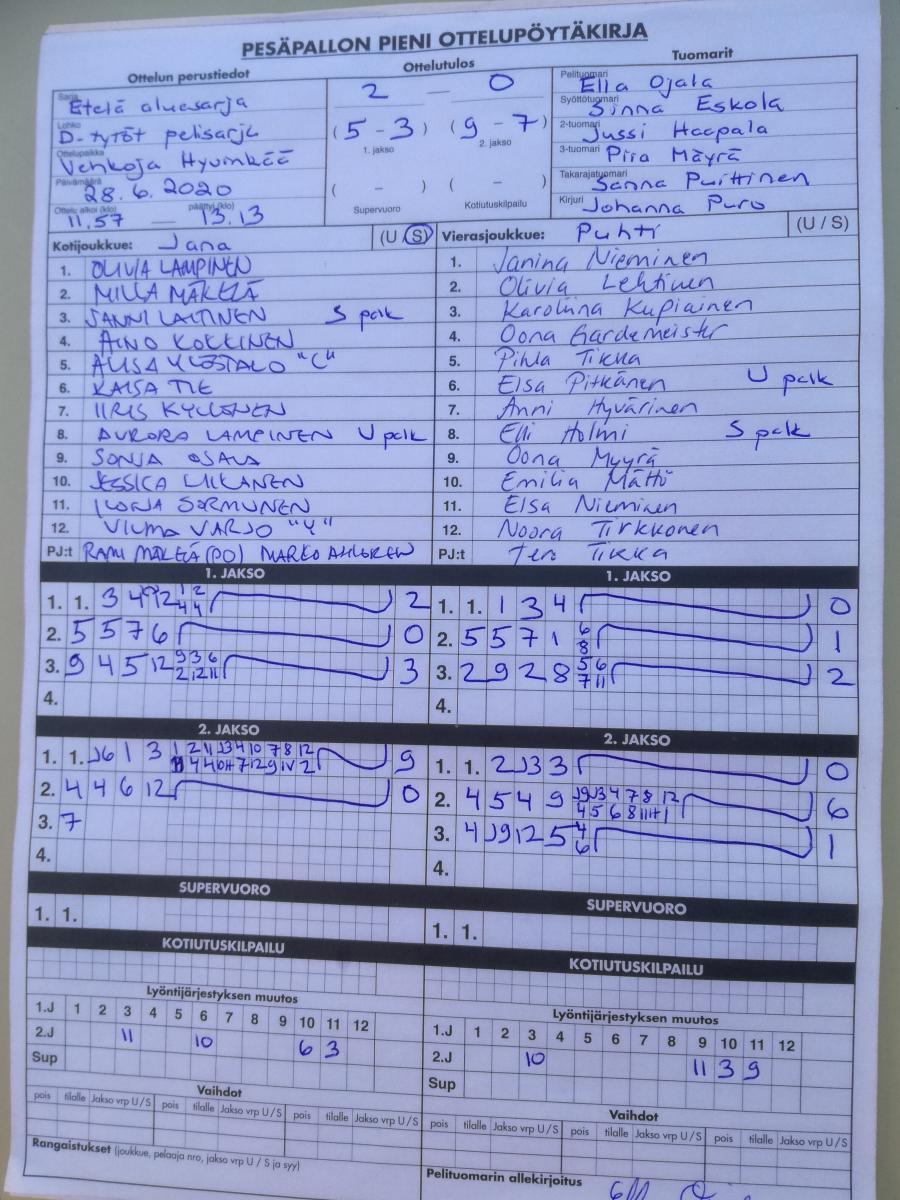 PESÄPALLON PIENI OTTELUPÖYTÄKIRJA
Ottelun perustiedot
Sarja Etelä aluesarja
Lohko D-tytöt pelisarja
Ottelupaikka Vehkoja Hyvinkää
Päivämäärä 28.6.2020
Ottelu alkoi (klo) 11.57 — päättyi (klo) 13.13
Ottelutulos
2 — 0
(5 - 3) (9 - 7)
1. jakso 2. jakso
( - ) ( - )
Supervuoro Kotiutuskilpailu
Tuomarit
Pelituomari Ella Ojala
Syöttötuomari Sinna Eskola
2-tuomari Jussi Haapala
3-tuomari Piia Mäyrä
Takarajatuomari Sanna Puittinen
Kirjuri Johanna Puro
Kotijoukkue: Jana (U / S)
1. OLIVIA LAMPINEN
2. MILLA MÄKELÄ
3. SANNI LAITINEN S palk
4. AINO KOKKINEN
5. AliSA YLÖSTALO "C"
6. KAISA TIE
7. IIRIS KYLLÖNEN
8. AURORA LAMPINEN U palk
9. SONJA OJALA
10. JESSICA LIIKANEN
11. ILONA SORMUNEN
12. VILMA VARJO "Y"
PJ:t RAMI MÄKELÄ (PO) MARKO AHLGREN
Vierasjoukkue: Puhti (U / S)
1. Janina Nieminen
2. Olivia Lehtinen
3. Karoliina Kupiainen
4. Oona Gardemeister
5. Pihla Tikka
6. Elsa Pitkänen U palk
7. Anni Hyvärinen
8. Elli Holmi S palk
9. Oona Myyrä
10. Emilia Mättö
11. Elsa Nieminen
12. Noora Tirkkonen
PJ:t Tero Tikka
1. JAKSO
1. 1. 3 4 2
2. 5 5 7 6 0
3. 9 4 5 12 3
4.
1. JAKSO
1. 1. 1 3 4 0
2. 5 5 7 1 6 8 1
3. 2 9 2 8 5 6 7 11 2
4.
2. JAKSO
1. 1. J6 1 3 9
2. 4 4 6 12 0
3. 7
4.
2. JAKSO
1. 1. 2 J3 3 0
2. 4 5 4 9 6
3. 4 J9 12 5 4 6 1
4.
SUPERVUORO
1. 1.
SUPERVUORO
1. 1.
KOTIUTUSKILPAILU
KOTIUTUSKILPAILU
Lyöntijärjestyksen muutos
1.J 1 2 3 4 5 6 7 8 9 10 11 12
2.J 11 10 6 3
Sup
Lyöntijärjestyksen muutos
1.J 1 2 3 4 5 6 7 8 9 10 11 12
2.J 10 11 3 9
Sup
Vaihdot
pois tilalle Jakso vrp U / S pois tilalle Jakso vrp U / S pois tilalle Jakso vrp U / S
Vaihdot
pois tilalle Jakso vrp U / S pois tilalle Jakso vrp U / S pois tilalle Jakso vrp U / S
Rangaistukset (joukkue, pelaaja nro, jakso vrp U / S ja syy)
Pelituomarin allekirjoitus